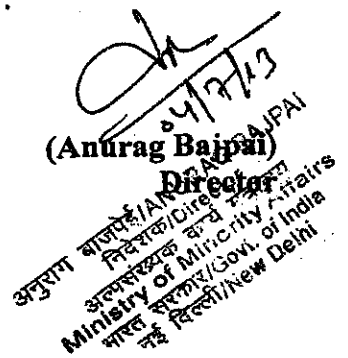 04/7/13
(Anurag Bajpai)
Director
अनुराग बाजपेई/ANURAG BAJPAI
निदेशक/Director
अल्पसंख्यक कार्य मंत्रालय
Ministry of Minority Affairs
भारत सरकार/Govt. of India
नई दिल्ली/New Delhi